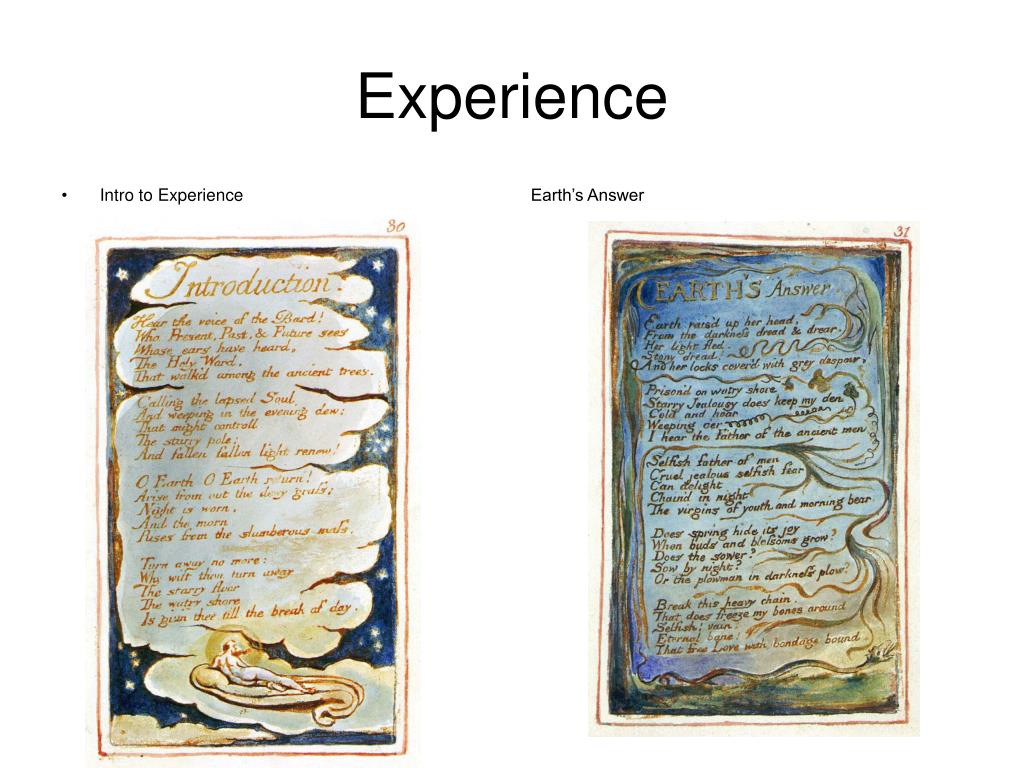 Experience
• Intro to Experience
30
Introduction.
Hear the voice of the Bard!
Who Present, Past, & Future sees
Whose ears have heard,
The Holy Word,
That walk'd among the ancient trees.
Calling the lapsed Soul
And weeping in the evening dew:
That might controll
The starry pole:
And fallen fallen light renew!
O Earth O Earth return!
Arise from out the dewy grass:
Night is worn,
And the morn
Rises from the slumberous mass.
Turn away no more:
Why wilt thou turn away
The starry floor
The watry shore
Is giv'n thee till the break of day.
Earth's Answer
31
EARTH'S Answer.
Earth rais'd up her head,
From the darkness dread & drear.
Her light fled:
Stony dread!
And her locks cover'd with grey despair.
Prison'd on watry shore
Starry Jealousy does keep my den
Cold and hoar
Weeping o'er
I hear the father of the ancient men
Selfish father of men
Cruel jealous selfish fear
Can delight
Chain'd in night
The virgins of youth and morning bear.
Does spring hide its joy
When buds and blossoms grow?
Does the sower?
Sow by night?
Or the plowman in darkness plow?
Break this heavy chain.
That does freeze my bones around
Selfish! vain.
Eternal bane!
That free Love with bondage bound.